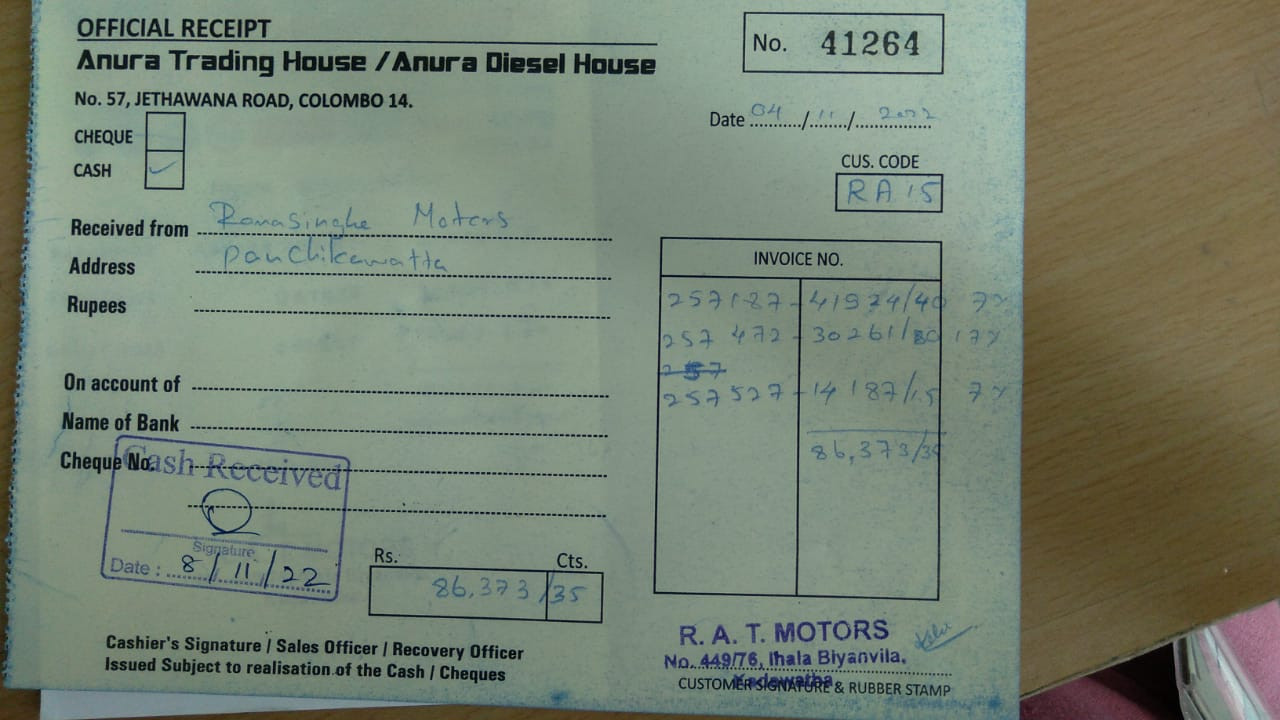 OFFICIAL RECEIPT
Anura Trading House / Anura Diesel House
No. 57, JETHAWANA ROAD, COLOMBO 14.
No. 41264
Date 04/11/2022
CHEQUE
CASH ✓
CUS. CODE
RA 15
Received from Ranasinghe Motors
Address Panchikawatta
Rupees
On account of
Name of Bank
Cheque No.
INVOICE NO.
257187 - 41924/40 7%
257 472 - 30261/80 17%
257
257527 - 14187/15 7%
86,373/35
Cash Received
Signature
Date : 8/11/22
Rs. Cts.
86,373/35
Cashier's Signature / Sales Officer / Recovery Officer
Issued Subject to realisation of the Cash / Cheques
R. A. T. MOTORS
No. 449/76, Ihala Biyanvila,
Kadawatha
CUSTOMER SIGNATURE & RUBBER STAMP